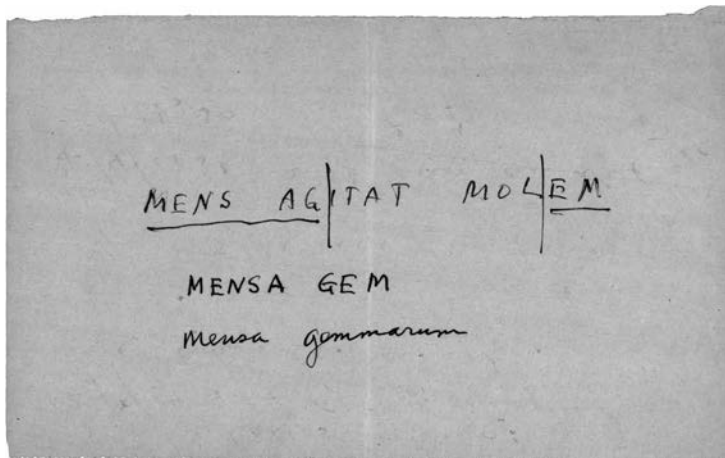 MENS AG|ITAT MOL|EM
MENSA GEM
Mensa gemmarum